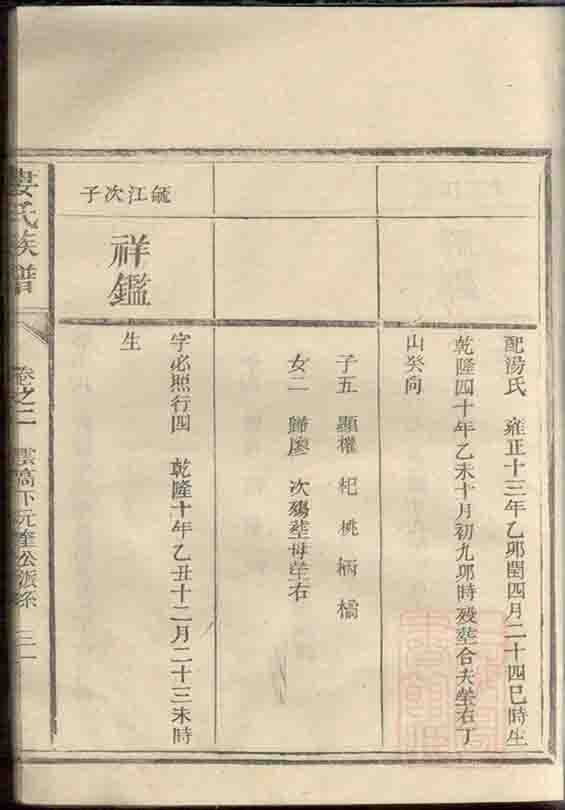 配湯氏　雍正十三年乙卯閏四月二十四巳時生
乾隆四十年乙未十月初九卯時殁塟合夫塋右丁
山癸向
子五　顯權　杞　桃　柄　橘
女二　歸廖　次殤塟母塋右
毓江次子
祥鑑
字必照行四　乾隆十年乙丑十二月二十三未時
生
婁氏族譜
卷之二
下沅奎公派系